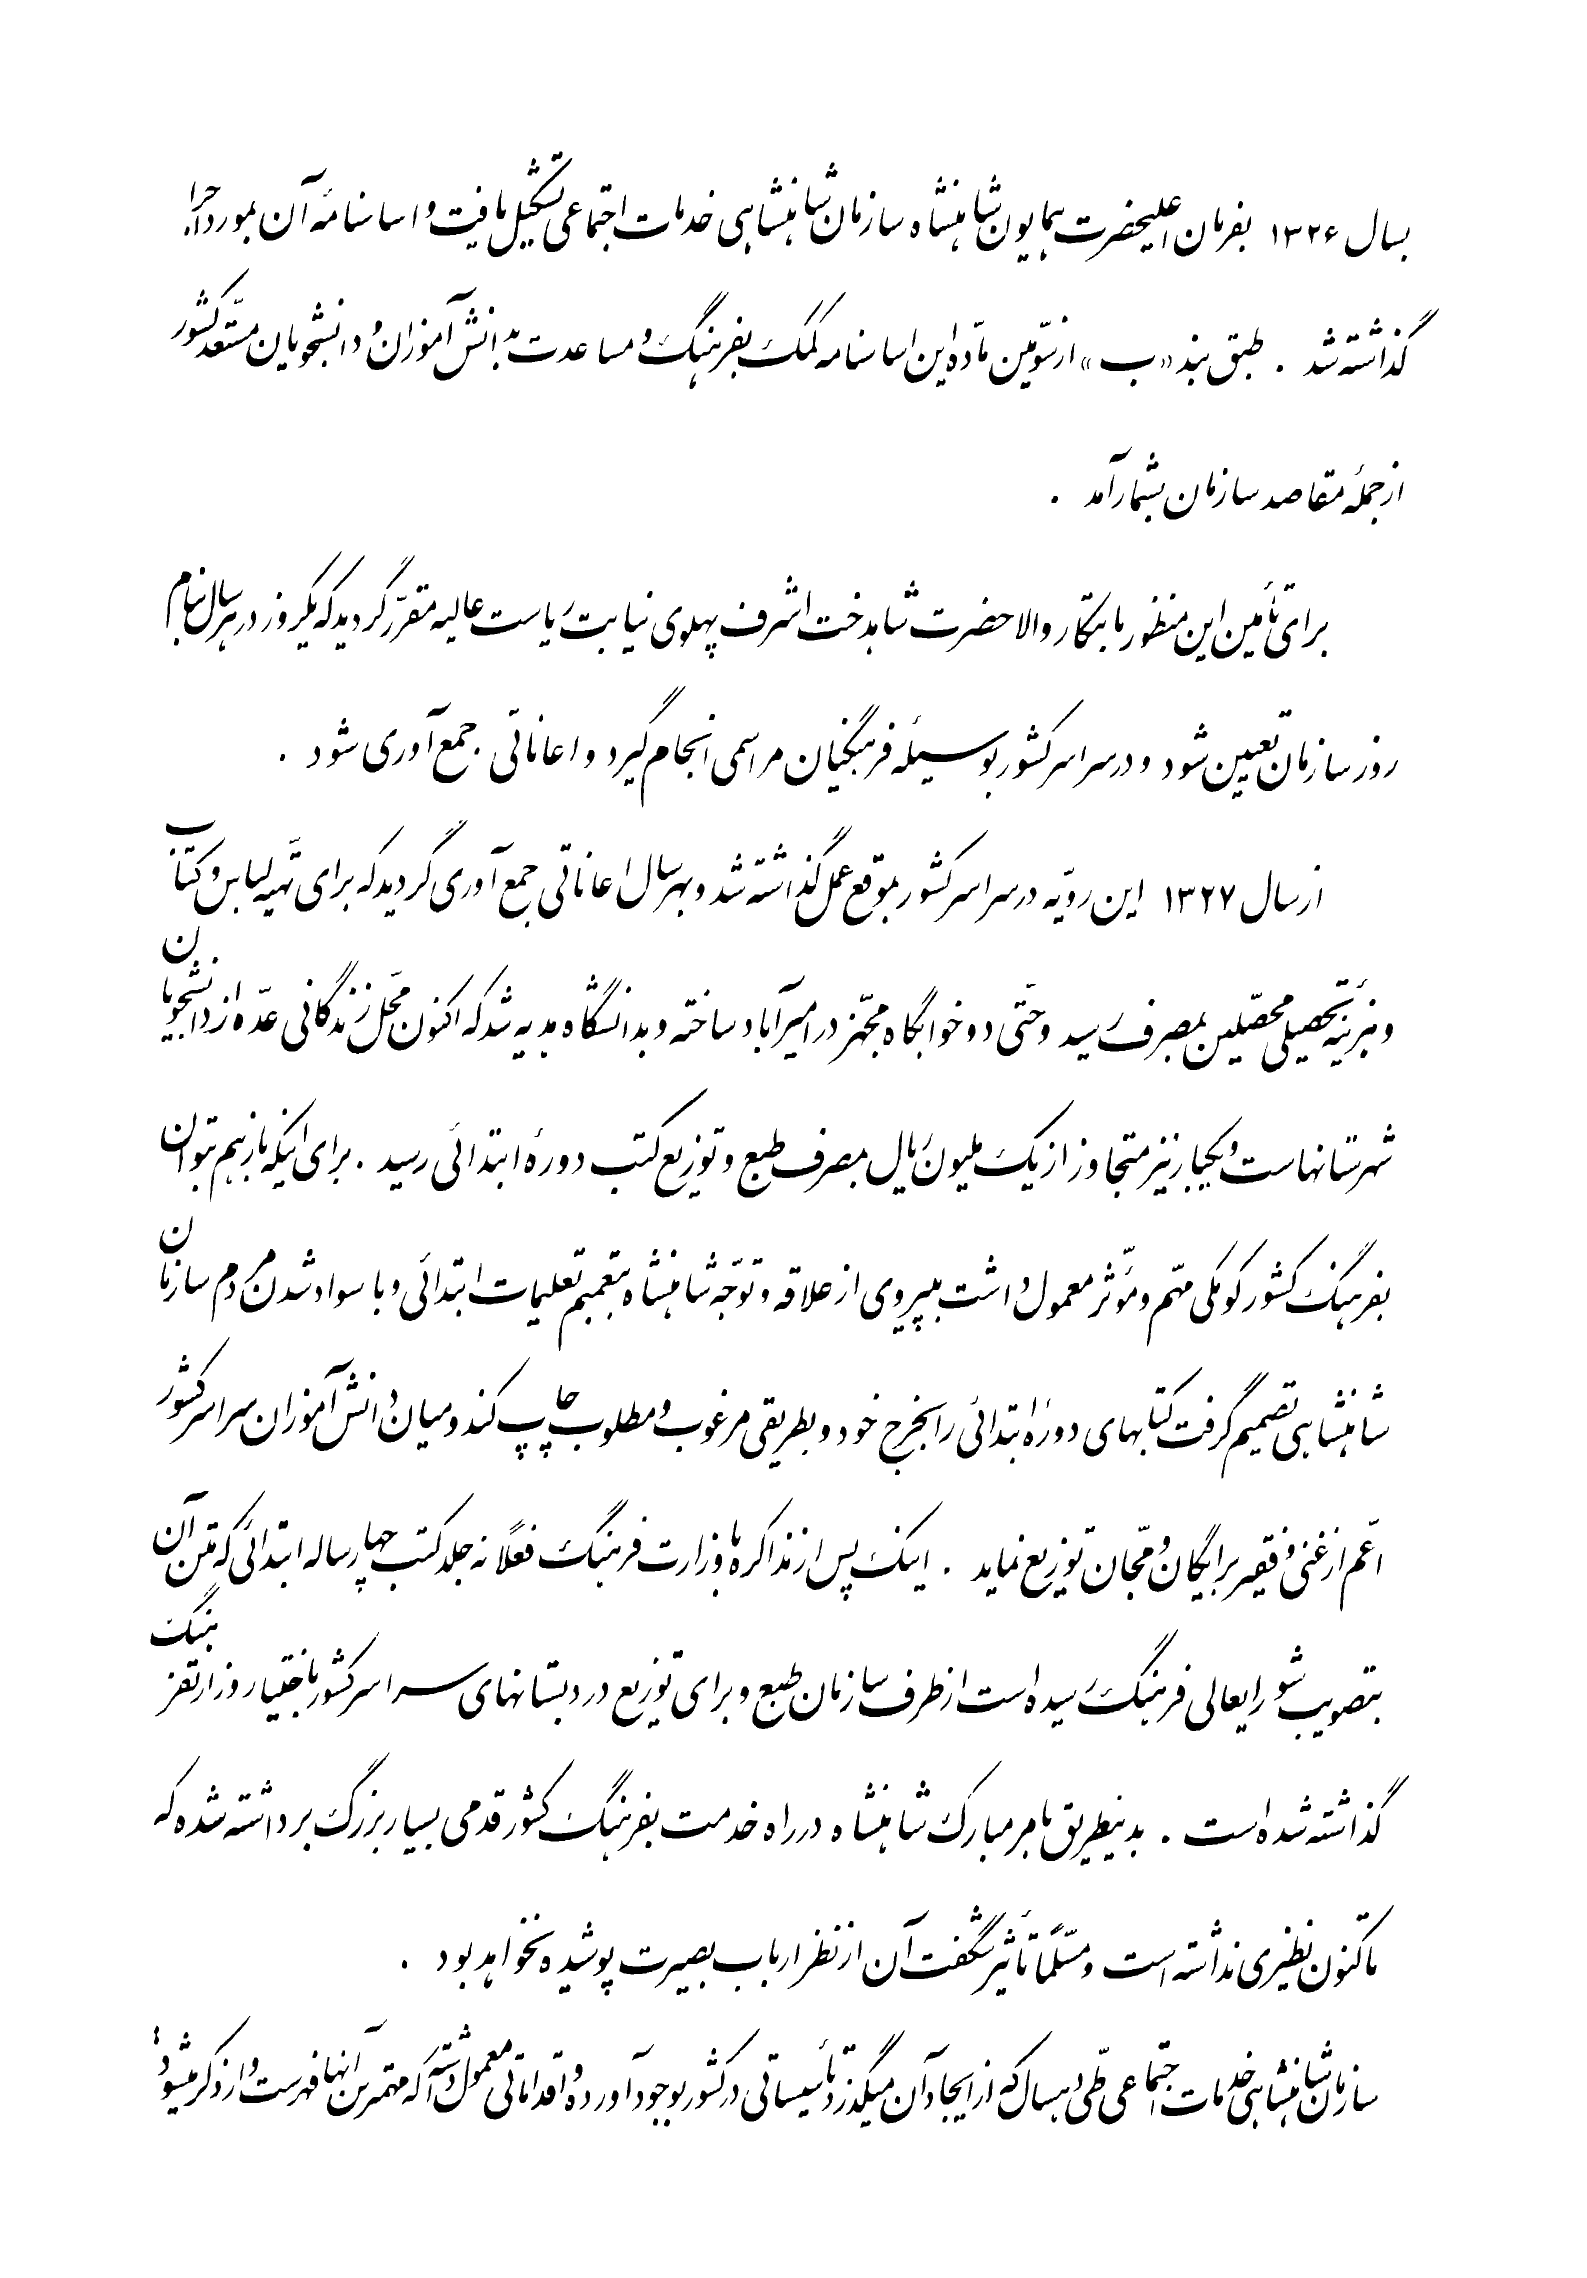 بسال ۱۳۲۶ بفرمان اعلیحضرت همایون شاهنشاه سازمان شاهنشاهی خدمات اجتماعی تشکیل یافت و اساسنامهٔ آن بمورد اجرا
گذاشته شد . طبق بند «ب» از سوّمین مادّه این اساسنامه کمک بفرهنگ و مساعدت بدانش آموزان و دانشجویان مستعد کشور
از جملهٔ مقاصد سازمان بشمار آمد .
برای تأمین این منظور بابتکار والاحضرت شاهدخت اشرف پهلوی نیابت ریاست عالیه مقرّر گردید که یکروز در هر سال بنام
روز سازمان تعیین شود و در سراسر کشور بوسیلهٔ فرهنگیان مراسمی انجام گیرد و اعاناتی جمع آوری شود .
از سال ۱۳۲۷ این رویّه در سراسر کشور بموقع عمل گذاشته شد و بهر سال اعاناتی جمع آوری گردید که برای تهیّه لباس و کتاب
و هزینهٔ تحصیلی محصّلین بمصرف رسید و حتّی دو خوابگاه مجهّز در امیرآباد ساخته و بدانشگاه هدیه شد که اکنون محلّ زندگانی عدّه از دانشجویان
شهرستانهاست و یکبار نیز متجاوز از یک ملیون ریال بمصرف طبع و توزیع کتب دورهٔ ابتدائی رسید . برای اینکه باز هم بتوان
بفرهنگ کشور کومکی مهّم و مؤثّر معمول داشت بپیروی از علاقه و توجّه شاهنشاه بتعمیم تعلیمات ابتدائی و با سواد شدن مردم سازمان
شاهنشاهی تصمیم گرفت کتابهای دورهٔ ابتدائی را بخرج خود و بطریقی مرغوب و مطلوب چاپ کند و میان دانش آموزان سراسر کشور
اعّم از غنی و فقیر برایگان و مجّان توزیع نماید . اینک پس از مذاکره با وزارت فرهنگ فعلاً نه جلد کتب چهار ساله ابتدائی که متن آن
بتصویب شورایعالی فرهنگ رسیده است از طرف سازمان طبع و برای توزیع در دبستانهای سراسر کشور باختیار وزارت فرهنگ
گذاشته شده است . بدینطریق بامر مبارک شاهنشاه در راه خدمت بفرهنگ کشور قدمی بسیار بزرگ برداشته شده که
تاکنون نظیری نداشته است و مسلّماً تأثیر شگفت آن از نظر ارباب بصیرت پوشیده نخواهد بود .
سازمان شاهنشاهی خدمات اجتماعی طیّ دهسال که از ایجاد آن میگذرد تأسیساتی در کشور بوجود آورده و اقداماتی معمول داشته که مهمترین آنها فهرست وار ذکر میشود :